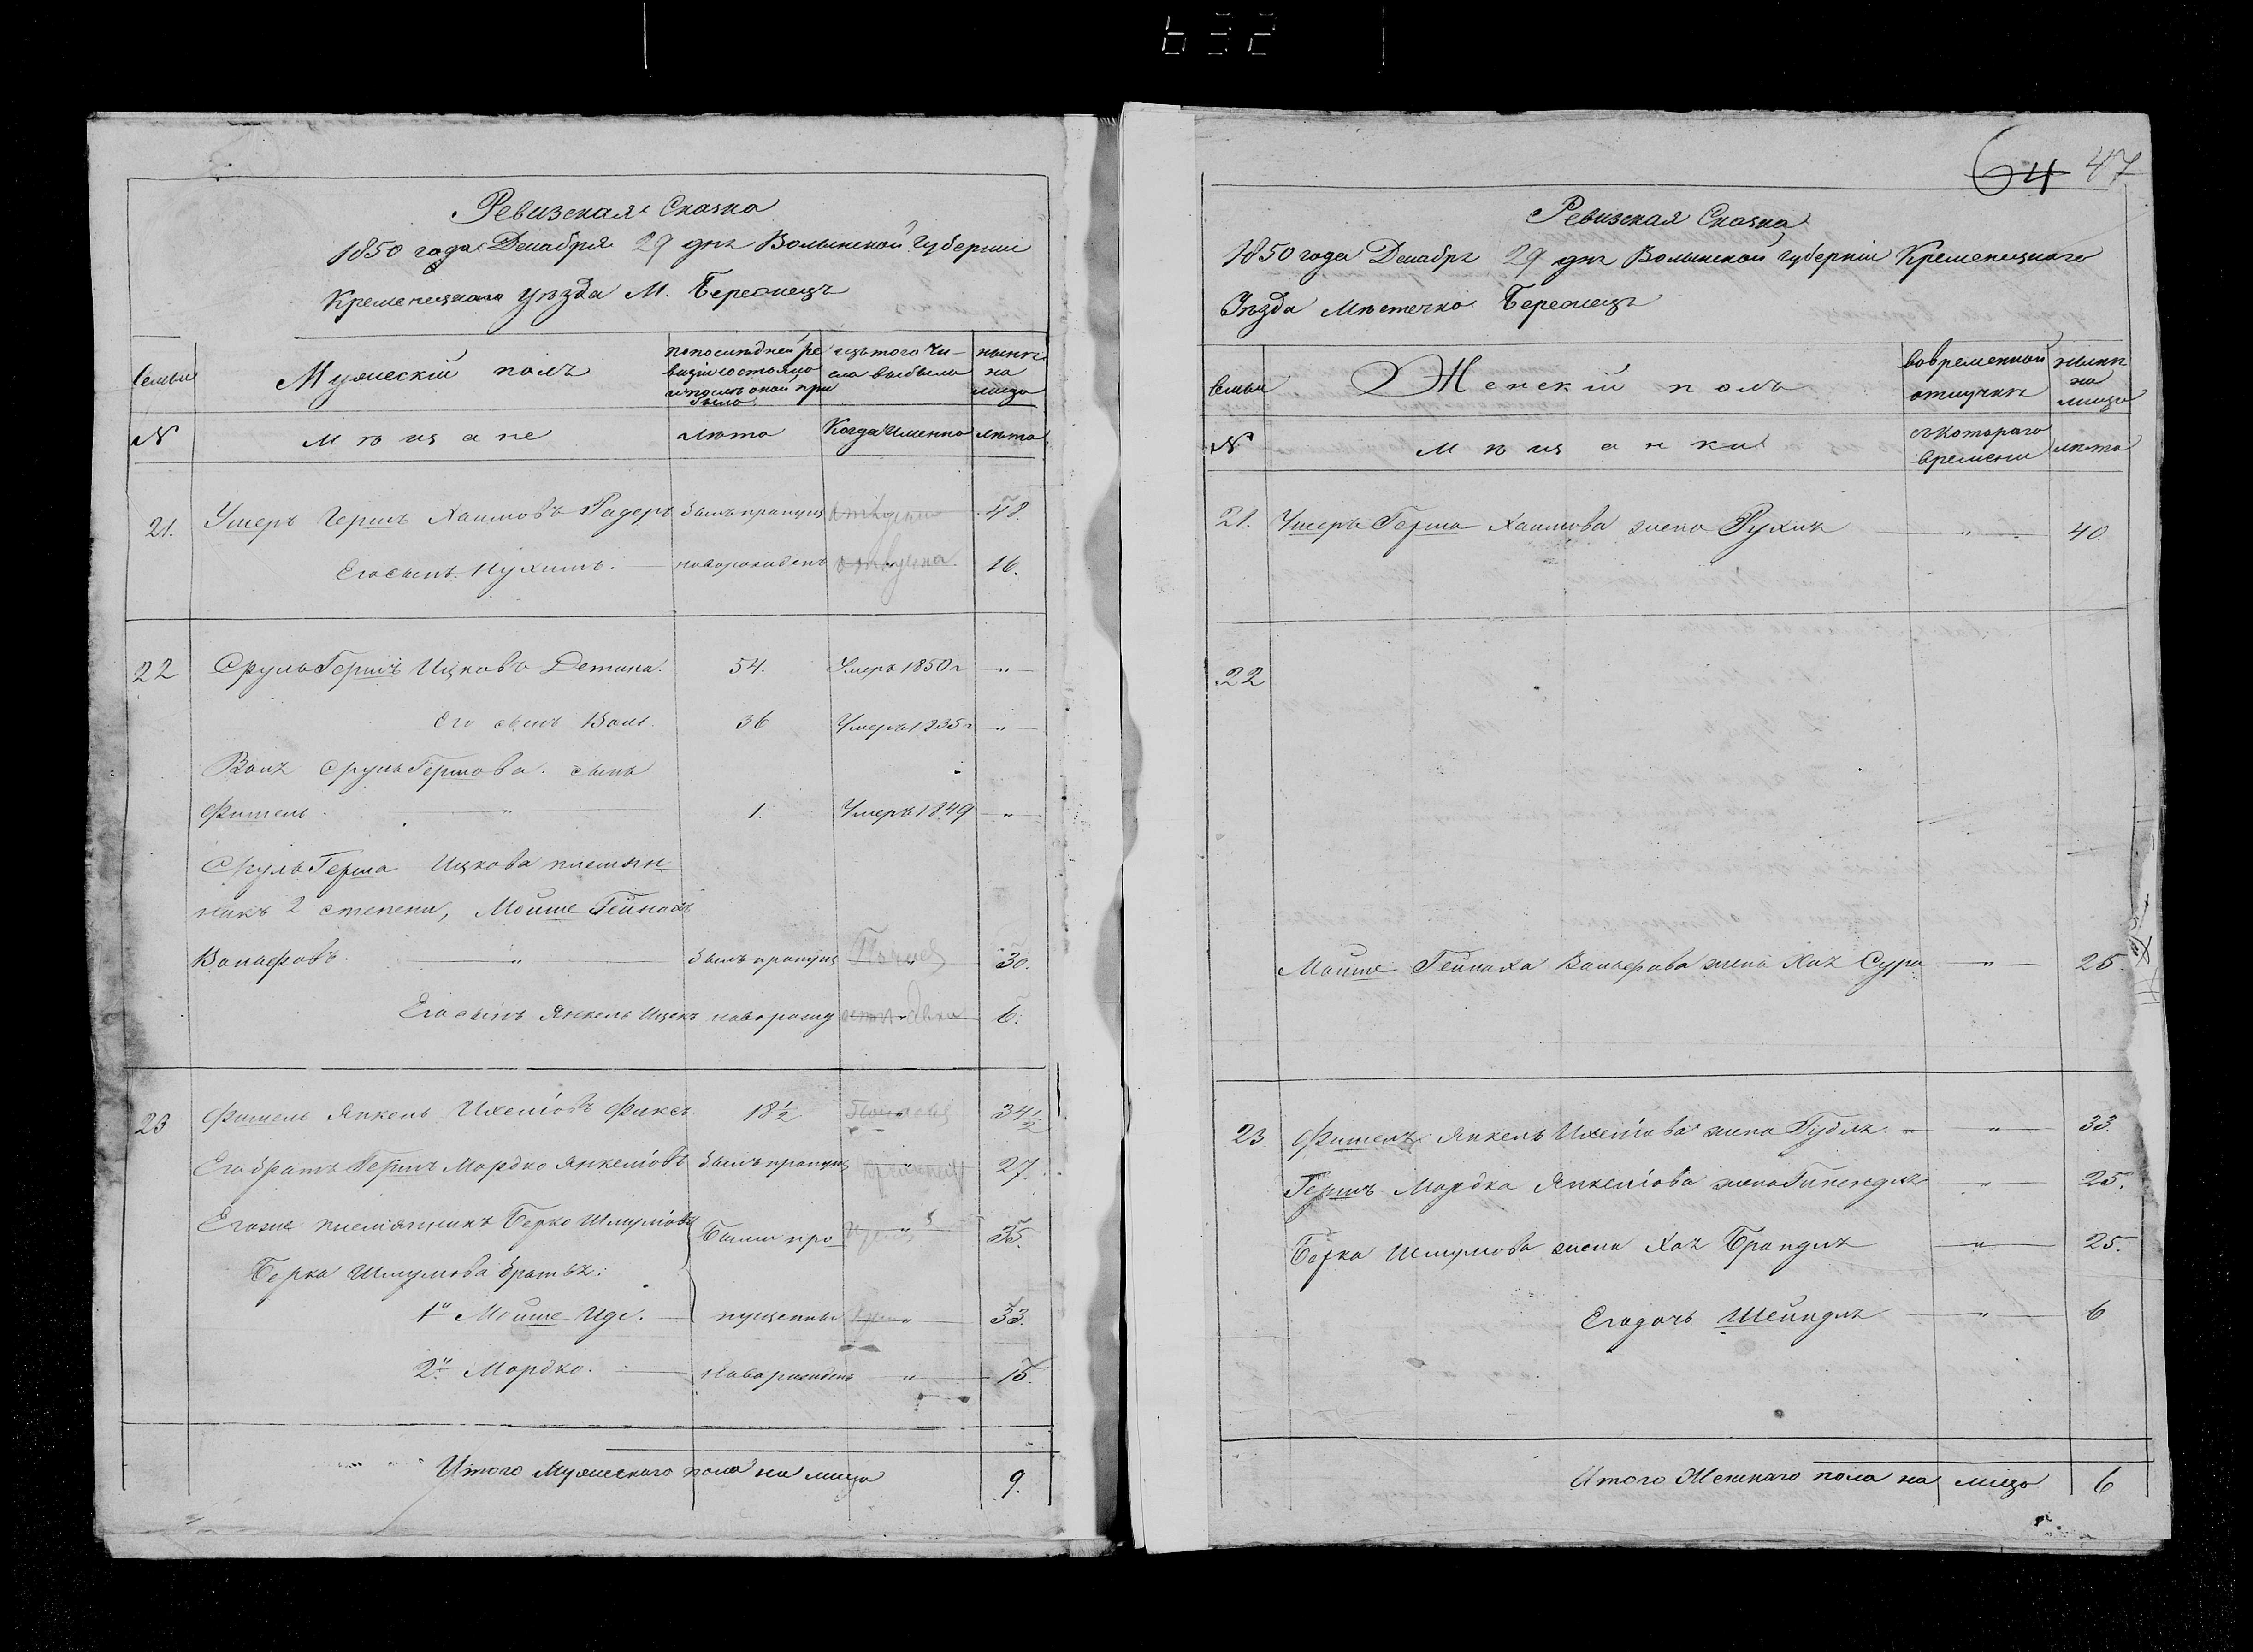 632
Ревизская Сказка
1850 года Декабря 29 дня Волынской Губернии
Кременецкаго уѣзда М. Бережецъ
семьи
Мужескій полъ
По последней ре
визіи состояло
и послѣ оной при
было
изъ того чи-
сла выбыло
нынѣ
на
лицо
№
Мѣщане
лѣта
Когда именно
лѣта
21. Умеръ Гершъ Хаимовъ Радеръ былъ пропущ 48.
Его сынъ Нухимъ. новорожденъ 16.
22 Сруль Гершъ Ицковъ Детина. 54. Умеръ 1850 г "
Его сынъ Вольф. 36 Умеръ 1835 г "
Сруль Гершова. сынъ
Фишель. " 1. Умеръ 1849 "
Сруль Герша Ицкова племян
никъ 2 степени, Мойше Гейнахъ
Вольфовъ. " былъ пропущ 30.
Его сынъ Янкель Ицекъ новорожд 6.
23 Фишель Янкель Ихелiовъ Фиксъ 18 ½ 34 ½
Его братъ Гершъ Мордко Янкелiовъ былъ пропущ " 27.
Его же племянникъ Берко Шлумовъ Были про " 35.
Берка Шмулiова братья:
1й Мойше Идс. пущенны " 33.
2й Мордко. новорожденъ " 15.
Итого Мужескаго пола на лицо 9.
64 47
Ревизская Сказка
1850 года Декабря 29 дня Волынской губерніи Кременецкаго
Уѣзда Мѣстечко Бережецъ
семьи
Женскій полъ
вовременной
отлучкѣ
нынѣ
на
лицо
№
Мѣщанки
съ котораго
времени
лѣта
21. Умеръ Герша Хаимова жена Рухля " 40.
22
Мойше Гейнаха Вольфова жена Хая Сура " 25.
23 Фишель Янкель Ихелiова жена Гудля " 33.
Гершъ Мордка Янкелiова жена " 25.
Берка Шмулiова жена Хая Брандля " 25.
Его дочь Шейндля " 6
Итого Женскаго пола на лицо 6